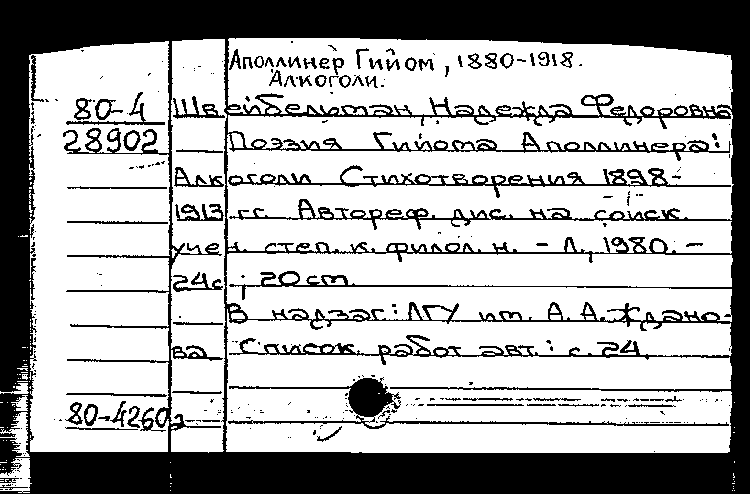 Аполлинер Гийом, 1880-1918.
Алкоголи.
80-4 Швейбельман, Надежда Федоровна
28902 Поэзия Гийома Аполлинера:
Алкоголи Стихотворения 1898-
1913 гг. Автореф. дис. на соиск.
учен. степ. к. филол. н. - Л., 1980. -
24с.; 20 см.
В надзаг: ЛГУ им. А. А. Ждано-
ва. Список работ авт.: с. 24.
80-4260а